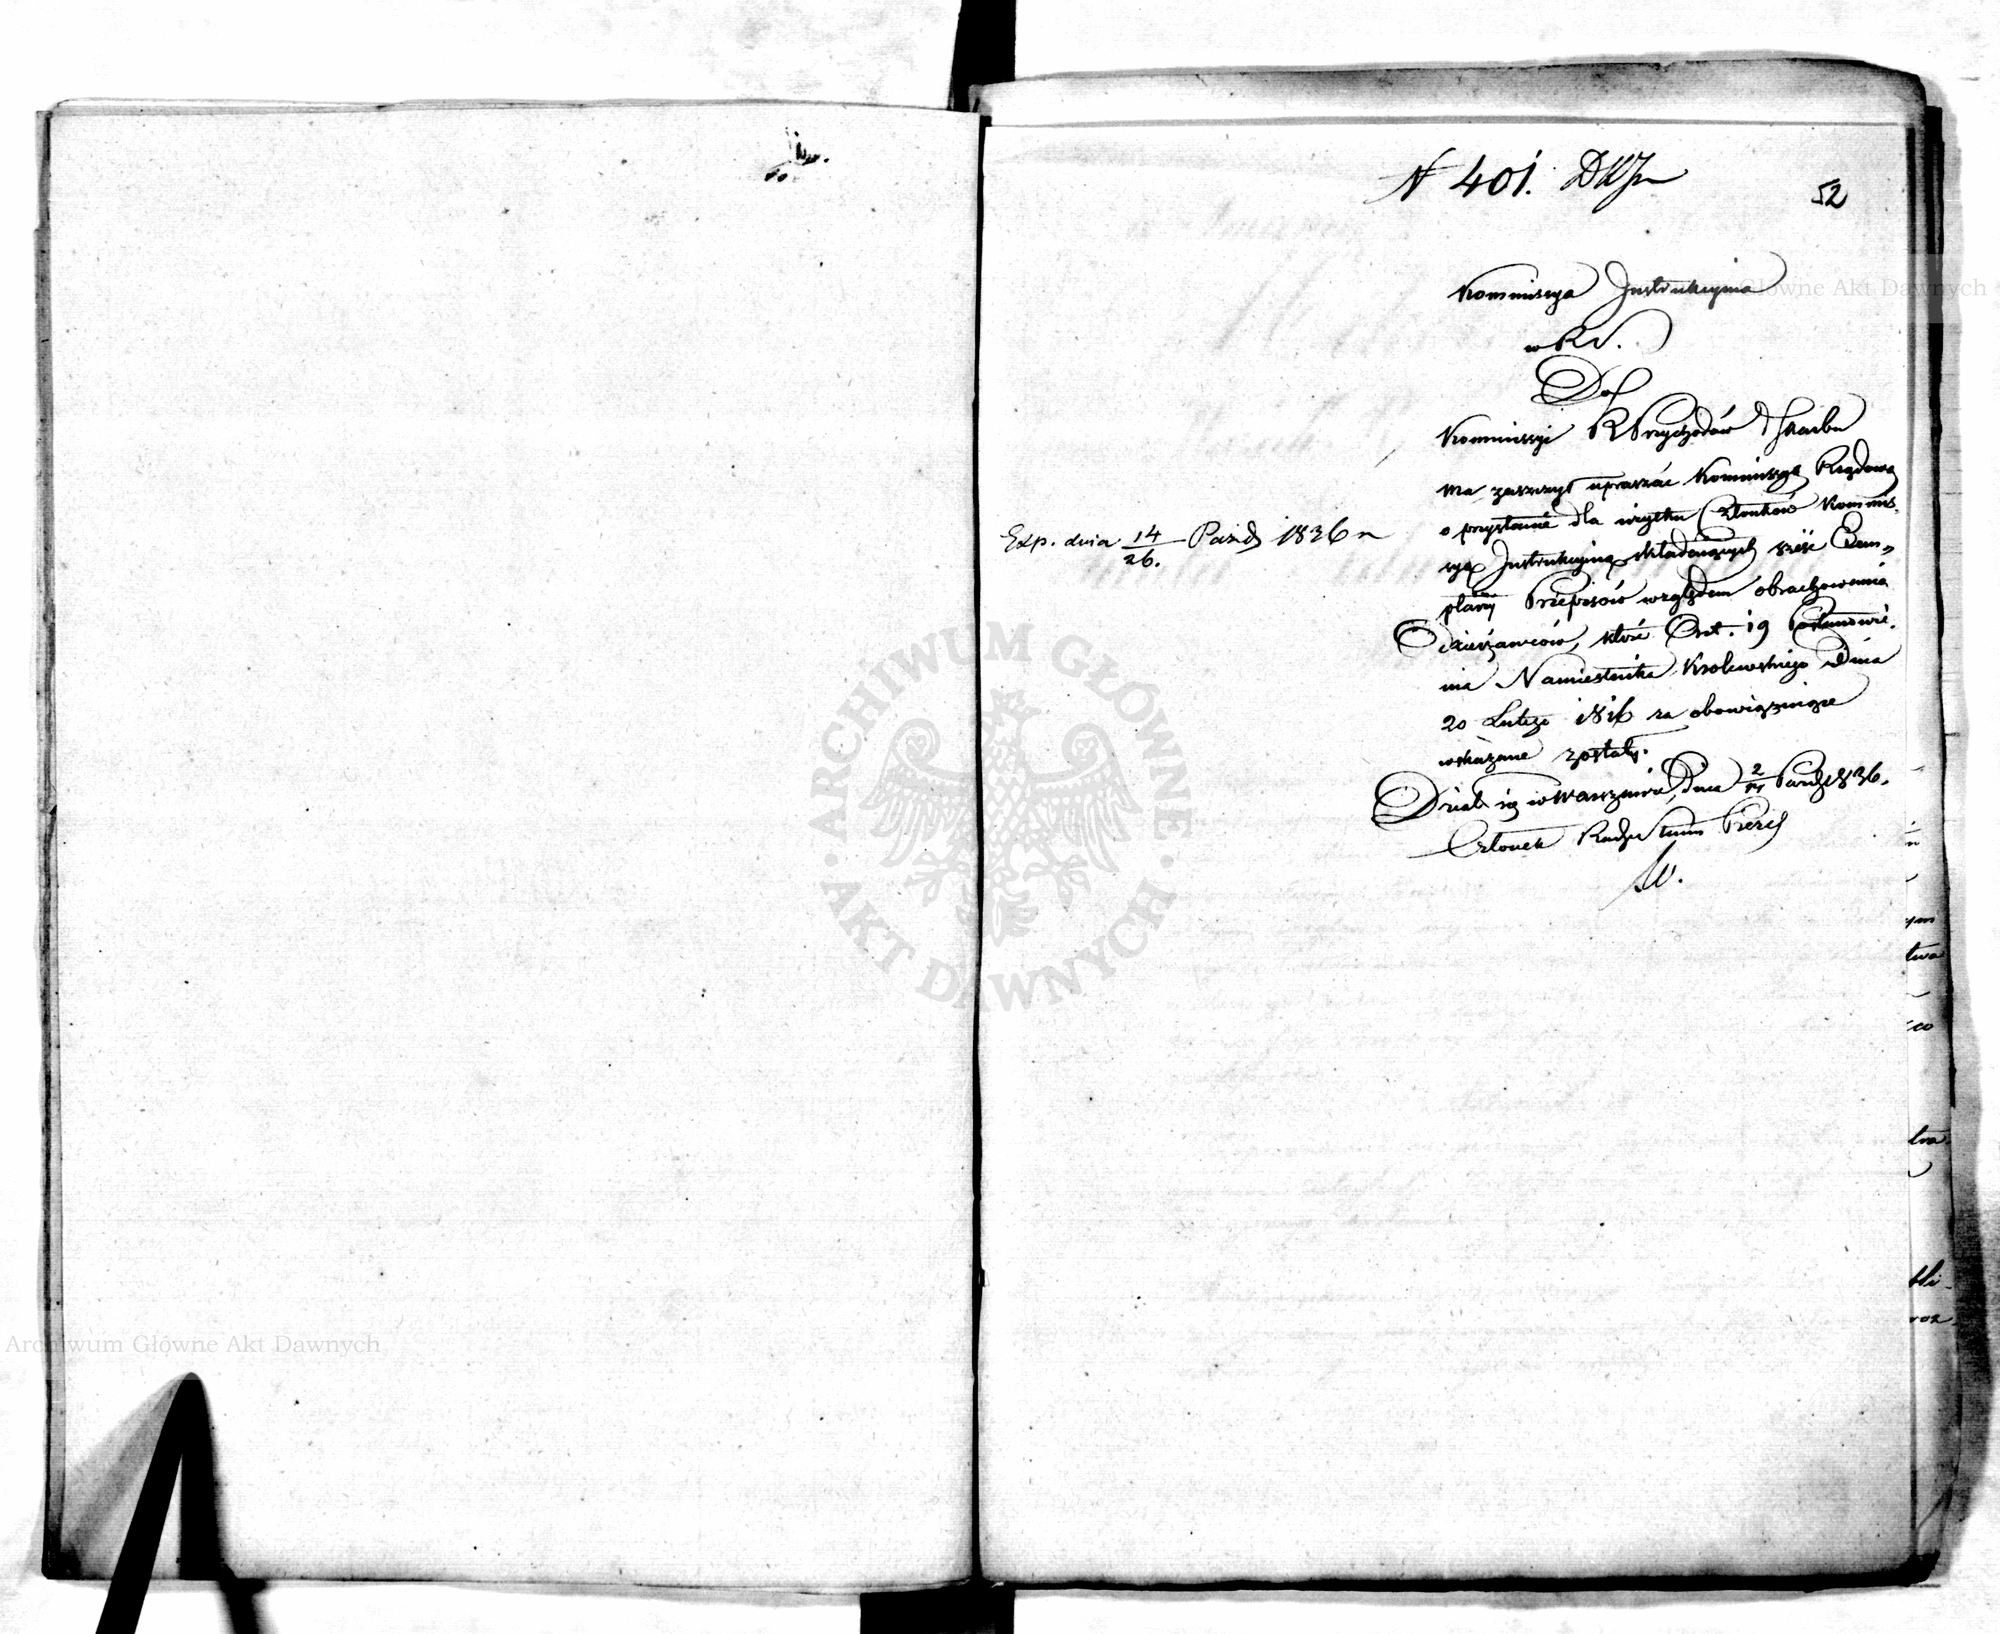 N 401.
52
Kommissya Instrukcyina
w RS.
Do
Kommissyi R Przychodów i Skarbu
ma zaszczyt upraszać Kommissyą Rządową
o przysłanie dla użytku Członków Kommis-
syą Instrukcyiną składaiących sześć Exem-
plarzy Przepisów względem obrachowania
Dzierżawców, które Art. 19 Postanowie-
nia Namiestnika Królewskiego Dnia
20 Lutego 1816 za obowiązuiące
wskazane zostały.
Działo się w Warszawie, Dnia 2/14 Paźdz 1836.
Członek Radzca Stanu Prezes
Exp. dnia 14/26. Paźdz 1836 r
ARCHIWUM GŁÓWNE AKT DAWNYCH
Archiwum Główne Akt Dawnych
Archiwum Główne Akt Dawnych